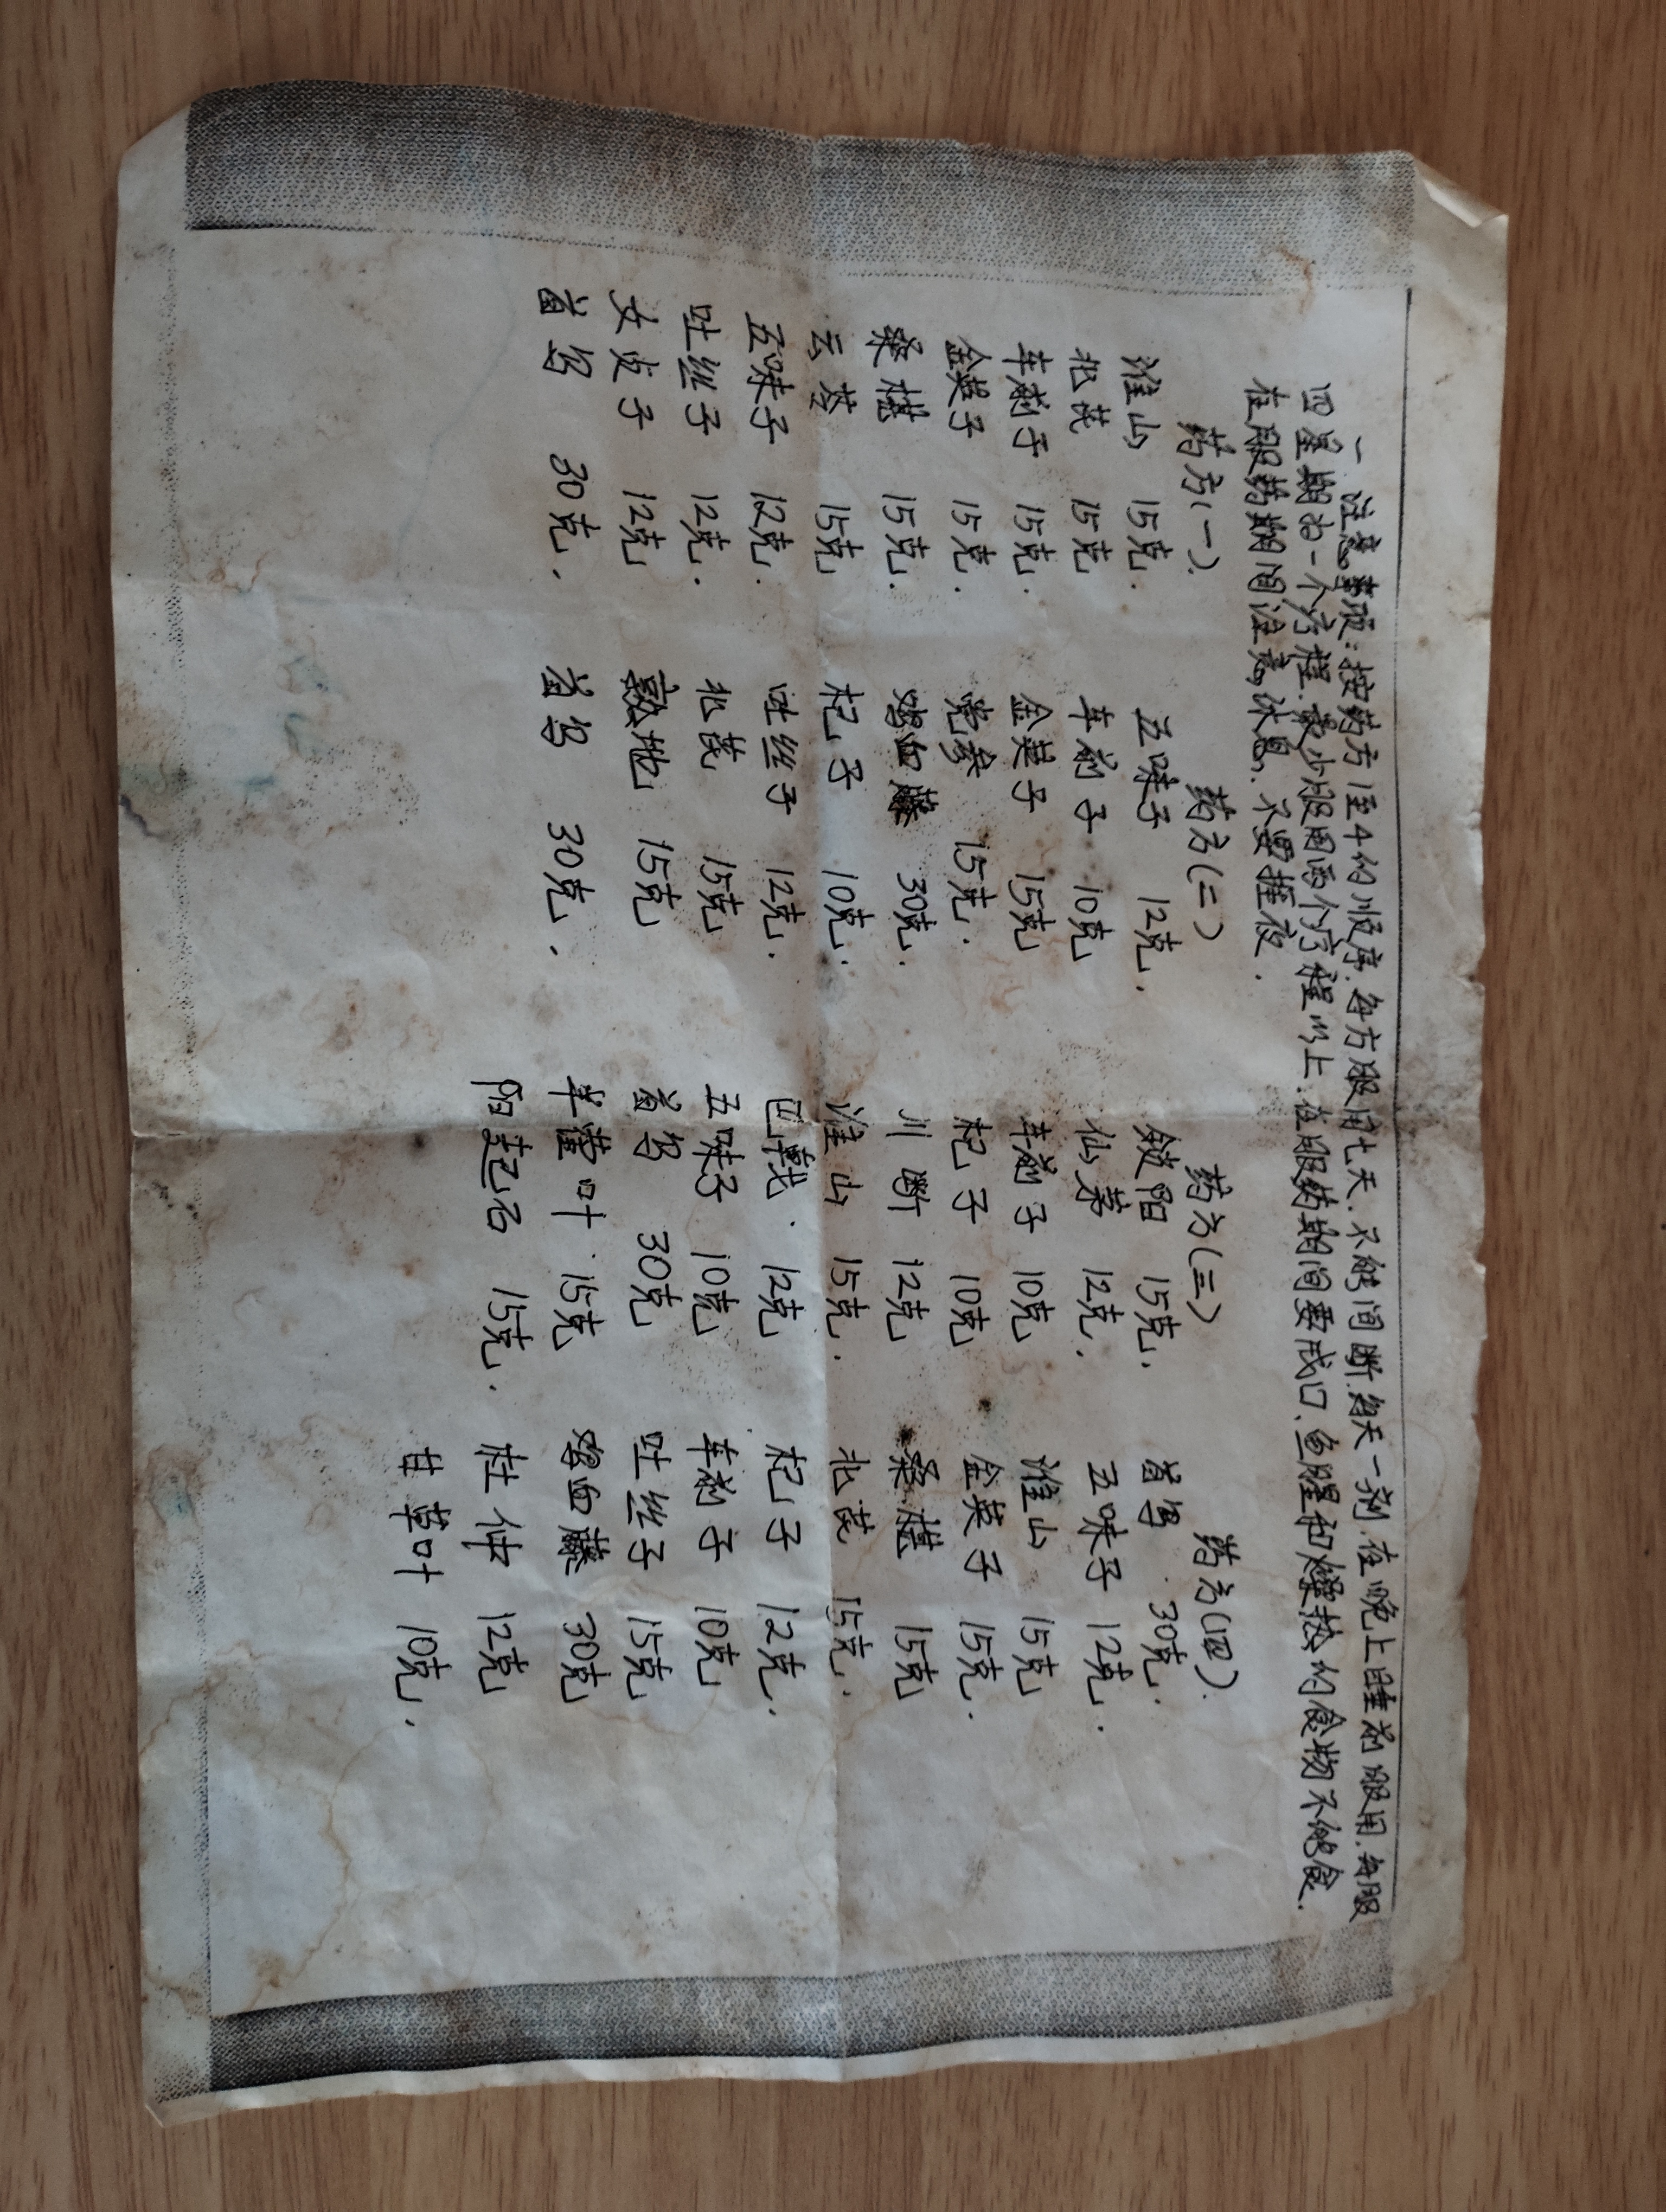 一 注意事项:按药方1至4的顺序.每方服用七天.不能间断.每天一剂.在晚上睡前服用.每服
四星期为一个疗程.最少服用两个疗程以上.在服药期间要戒口.鱼腥和燥热的食物不能食.
在服药期间注意休息.不要捱夜.
药方(一).
淮山 15克.
北芪 15克
车前子 15克.
金英子 15克.
桑椹 15克.
云苓 15克
五味子 12克.
吐丝子 12克.
女贞子 12克
首乌 30克.
药方(二)
五味子 12克.
车前子 10克
金英子 15克
党参 15克.
鸡血藤 30克.
杞子 10克.
吐丝子 12克.
北芪 15克
熟地 15克
首乌 30克.
药方(三)
锁阳 15克.
仙茅 12克.
车前子 10克
杞子 10克
川断 12克
淮山 15克.
巴戟. 12克
五味子 10克
首乌 30克
羊藿叶. 15克
阳起石 15克.
药方(四).
首乌. 30克.
五味子 12克.
淮山 15克
金英子 15克.
桑椹 15克
北芪 15克.
杞子 12克.
车前子 10克
吐丝子 15克
鸡血藤 30克
杜仲 12克
甘草叶 10克.